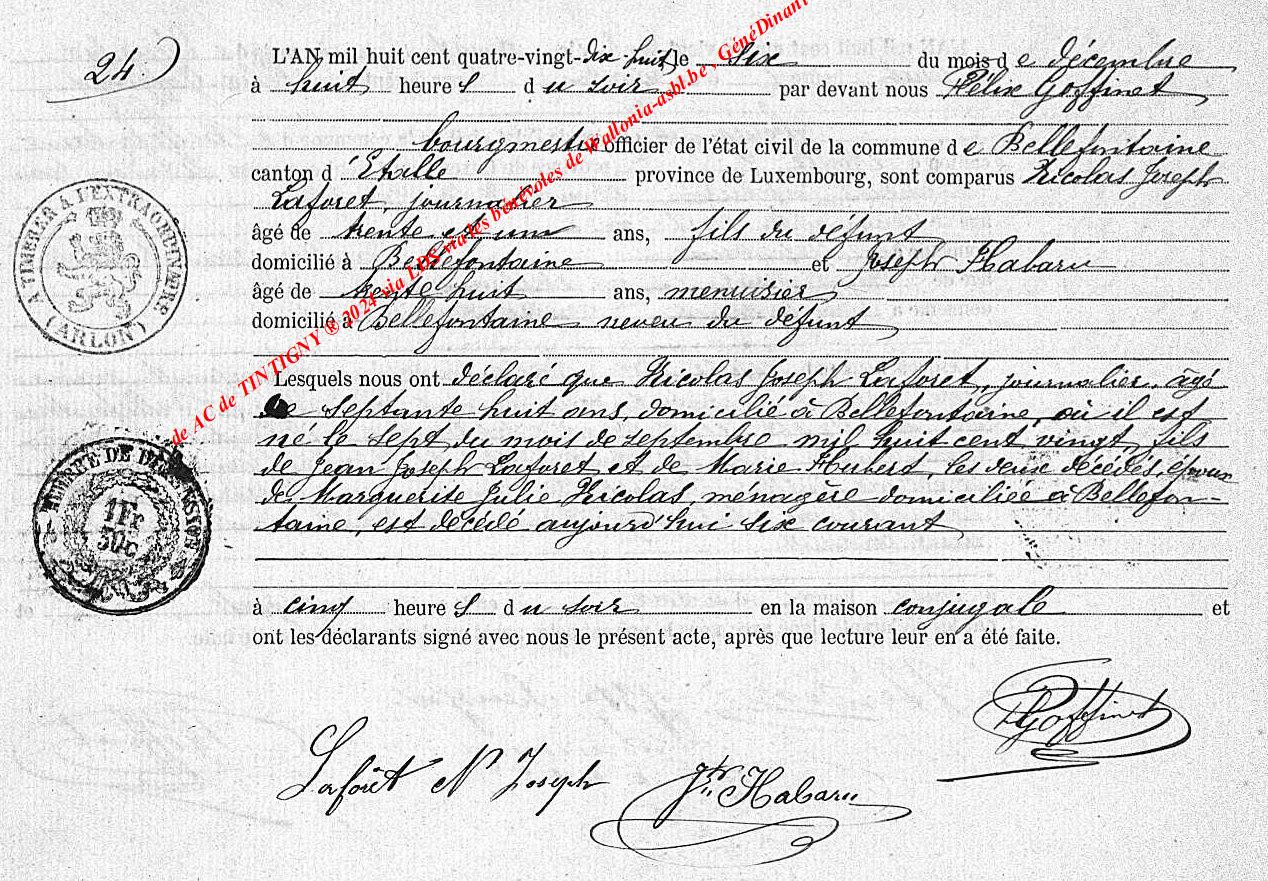 24.
L'AN mil huit cent quatre-vingt-dix huit, le six du mois de décembre
à huit heures du soir par devant nous Félix Goffinet
bourgmestre officier de l'état civil de la commune de Bellefontaine
canton d'Etalle province de Luxembourg, sont comparus Nicolas Joseph
Laforet, journalier
âgé de trente et un ans, fils du défunt
domicilié à Bellefontaine et Joseph Habaru
âgé de trente huit ans, menuisier
domicilié à Bellefontaine neveu du défunt
Lesquels nous ont déclaré que Nicolas Joseph Laforet, journalier, âgé
de septante huit ans, domicilié à Bellefontaine, où il est
né le sept du mois de septembre mil huit cent vingt, fils
de Jean Joseph Laforet et de Marie Hubert, les deux décédés, époux
de Marguerite Julie Nicolas, ménagère domiciliée à Bellefon-
taine, est décédé aujourd'hui six courant
à cinq heures du soir en la maison conjugale et
ont les déclarants signé avec nous le présent acte, après que lecture leur en a été faite.
Goffinet
Laforêt N Joseph
Jph Habaru
A TIMBRER A L'EXTRAORDINAIRE
(ARLON)
TIMBRE DE DIMENSION
1Fr
30c
de AC de TINTIGNY ® 2024 via LDS via les bénévoles de Wallonia-asbl.be, GénéDinant